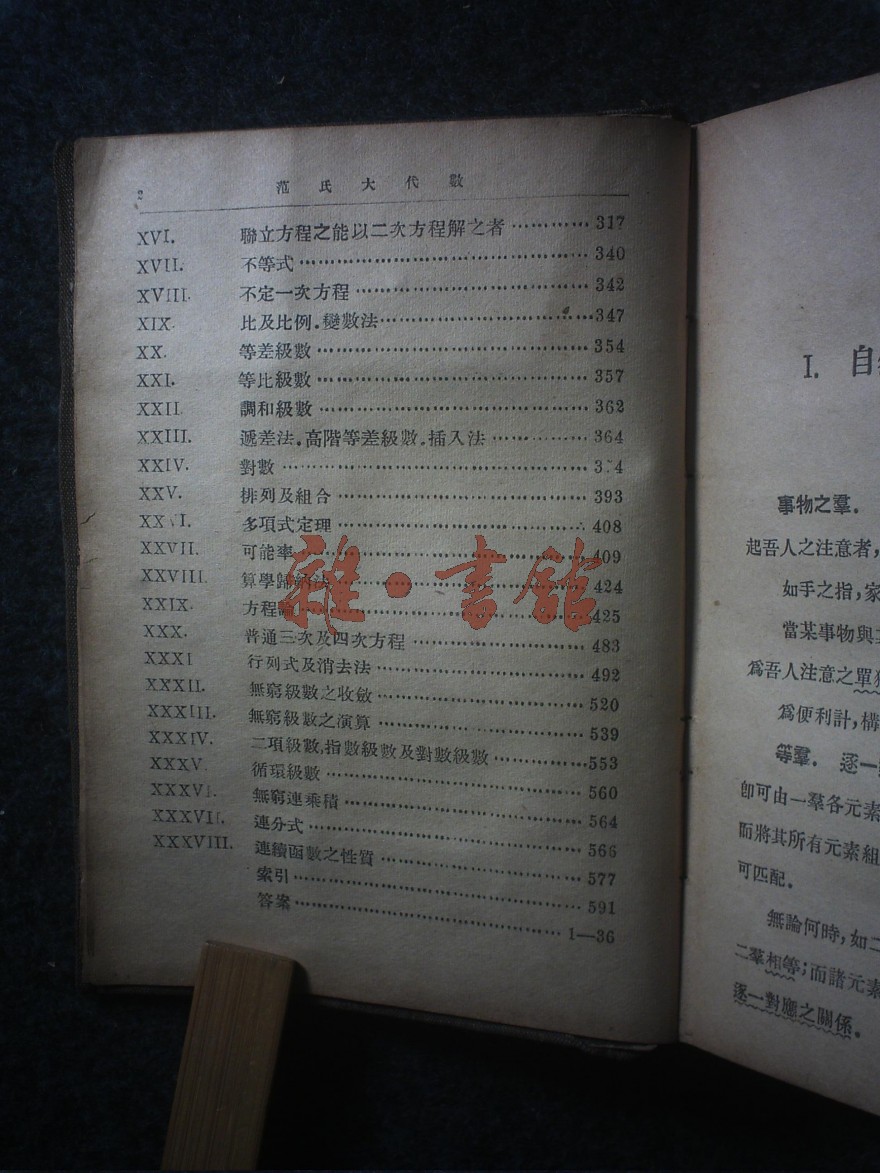 2 范氏大代數
XVI. 聯立方程之能以二次方程解之者 ………… 317
XVII. 不等式 ………… 340
XVIII. 不定一次方程 ………… 342
XIX. 比及比例.變數法 ………… 347
XX. 等差級數 ………… 354
XXI. 等比級數 ………… 357
XXII 調和級數 ………… 362
XXIII. 遞差法.高階等差級數.插入法 ………… 364
XXIV. 對數 ………… 3 4
XXV. 排列及組合 ………… 393
XXVI. 多項式定理 ………… 408
XXVII. 可能率 ………… 409
XXVIII. 算學歸納法 ………… 424
XXIX. 方程論 ………… 425
XXX. 普通三次及四次方程 ………… 483
XXXI 行列式及消去法 ………… 492
XXXII. 無窮級數之收斂 ………… 520
XXXIII. 無窮級數之演算 ………… 539
XXXIV. 二項級數,指數級數及對數級數 ………… 553
XXXV. 循環級數 ………… 560
XXXVI. 無窮連乘積 ………… 564
XXXVII. 連分式 ………… 566
XXXVIII. 連續函數之性質 ………… 577
索引 ………… 591
答案 ………… 1—36
雜·書館
I. 自
事物之羣.
起吾人之注意者,
如手之指,家
當某事物與
爲吾人注意之單
爲便利計,構
等羣. 逐一
卽可由一羣各元素
而將其所有元素組
可匹配.
無論何時,如二
二羣相等;而諸元素
逐一對應之關係.